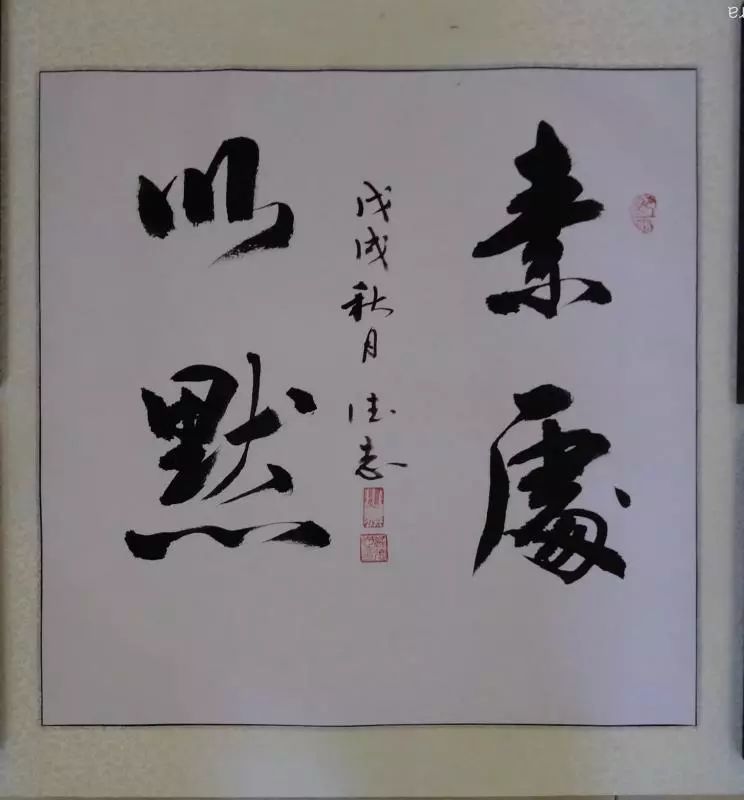 素處
以默
戊戌秋月
志